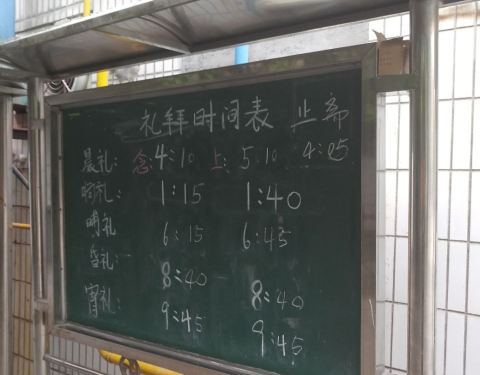 礼拜时间表 止斋
晨礼: 念: 4:10 上: 5:10 4:05
晌礼: 1:15 1:40
晡礼 6:15 6:45
昏礼: 8:40 8:40
宵礼: 9:45 9:45